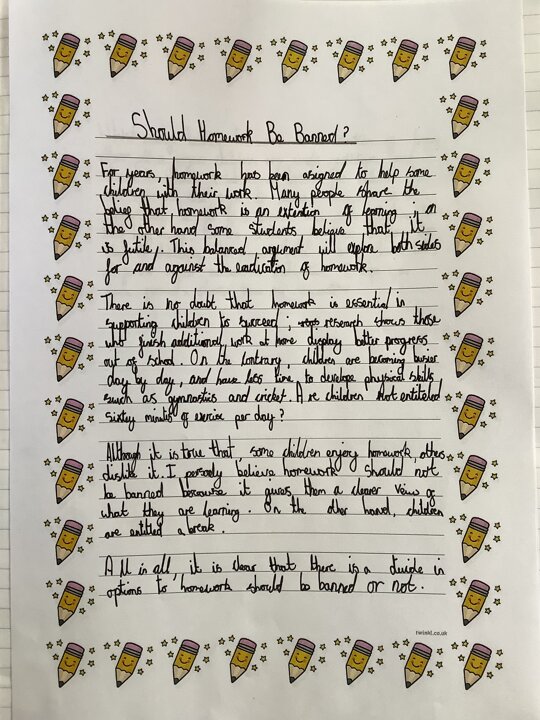 Should Homework Be Banned?
For years, homework has been assigned to help some
children with their work. Many people share the
belief that homework is an extention of learning ; on
the other hand some students believe that it
is futile. This balanced argument will explore both sides
for and against the eradication of homework.
There is no doubt that homework is essential in
supporting children to succeed ; research shows those
who finish additional work at home display better progress
out of school. On the contrary, children are becoming busier
day by day, and have less time to develop physical skills
such as gymnastics and cricket. Are children not entiteled
sixty minutes of exercise per day?
Although it is true that, some children enjoy homework others
dislike it. I believe homework should not
be banned because it gives them a clearer view of
what they are learning. On the other hand, children
are entitled a break.
All in all, it is clear that there is a divide in
options to homework should be banned or not.
twinkl.co.uk